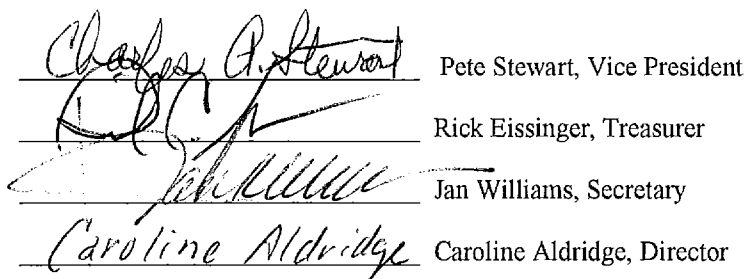 Charles A. Stewart Pete Stewart, Vice President
Rick Eissinger, Treasurer
Jan Williams, Secretary
Caroline Aldridge Caroline Aldridge, Director